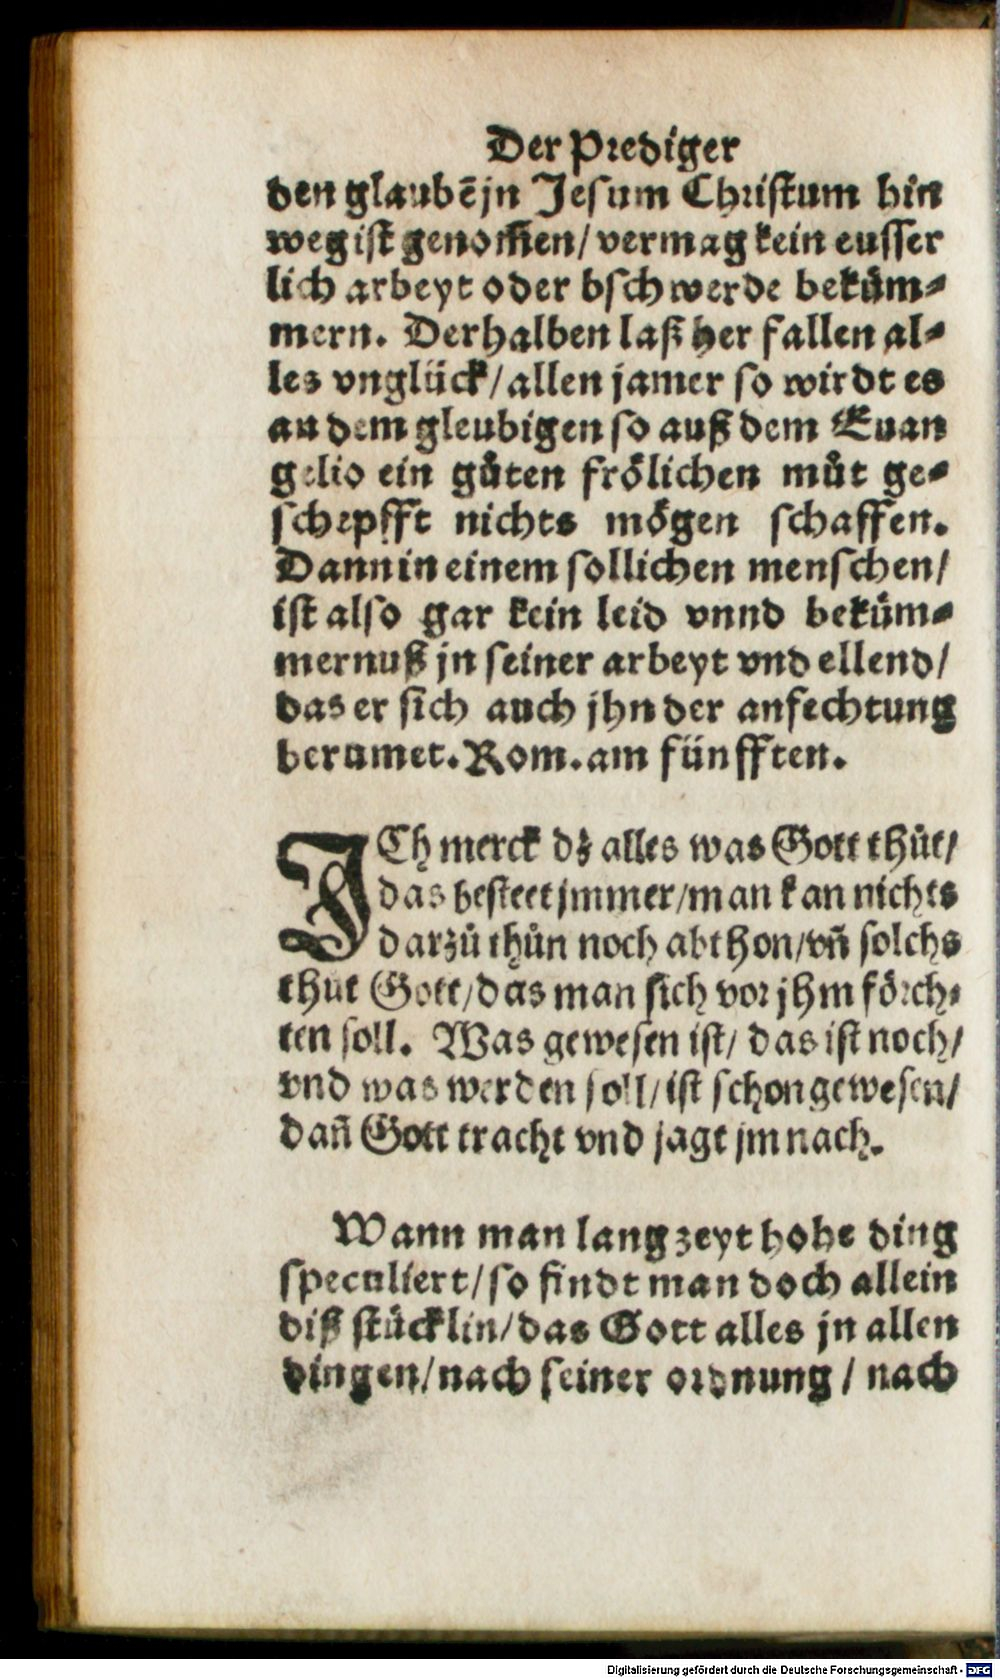 Der Prediger
den glaubē jn Jesum Christum hin
weg ist genom̄en/ vermag kein eusser
lich arbeyt oder bschwerde bekům⸗
mern. Derhalben laß her fallen al⸗
les vnglück/ allen jamer so wirdt es
an dem gleubigen so auß dem Euan
gelio ein gůten frőlichen můt ge⸗
schepfft nichts mőgen schaffen.
Dann in einem sollichen menschen/
ist also gar kein leid vnnd bekům⸗
mernuß jn seiner arbeyt vnd ellend/
das er sich auch jhn der anfechtung
berumet. Rom. am fünfften.
ICh merck dz alles was Gott thůt/
das besteet jmmer/ man kan nichts
darzů thůn noch abthon/ vn̄ solchs
thut Gott/ das man sich vor jhm főrch⸗
ten soll. Was gewesen ist/ das ist noch/
vnd was werden soll/ ist schon gewesen/
dan̄ Gott tracht vnd jagt jm nach.
Wann man lang zeyt hohe ding
speculiert/ so findt man doch allein
diß stücklin/ das Gott alles jn allen
dingen/ nach seiner ordnung / nach
Digitalisierung gefördert durch die Deutsche Forschungsgemeinschaft - DFG